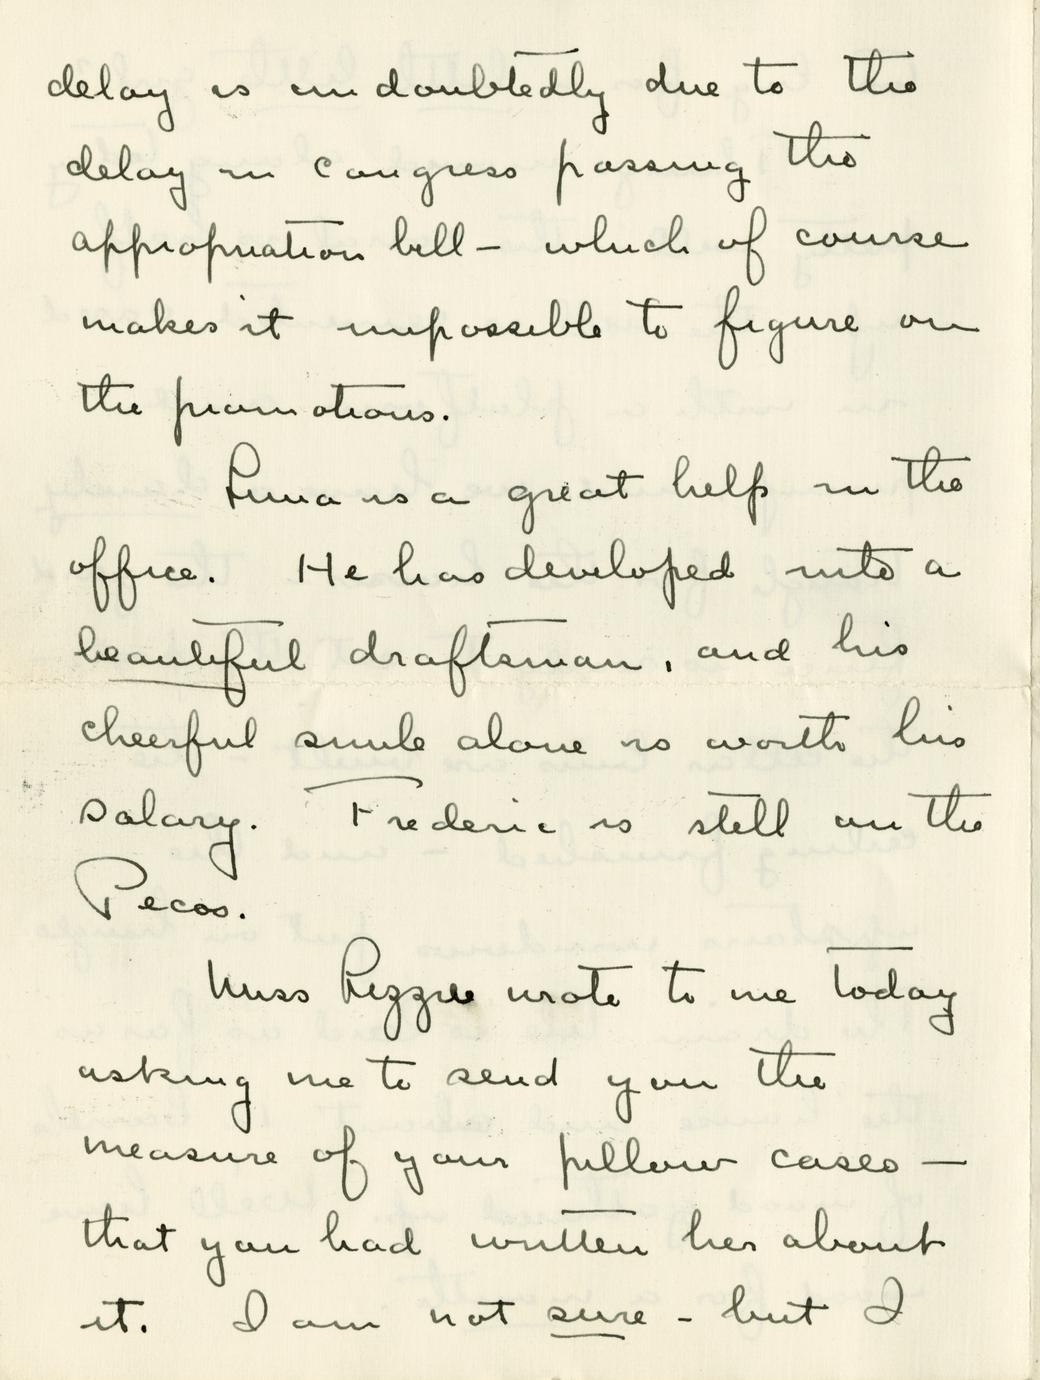 delay is undoubtedly due to the
delay in Congress passing the
appropriation bill – which of course
makes it impossible to figure on
the promotions.
Luna is a great help in the
office. He has developed into a
beautiful draftsman, and his
cheerful smile alone is worth his
salary. Frederic is still on the
Pecos.
Miss Lizzie wrote to me today
asking me to send you the
measure of your pillow cases –
that you had written her about
it. I am not sure – but I